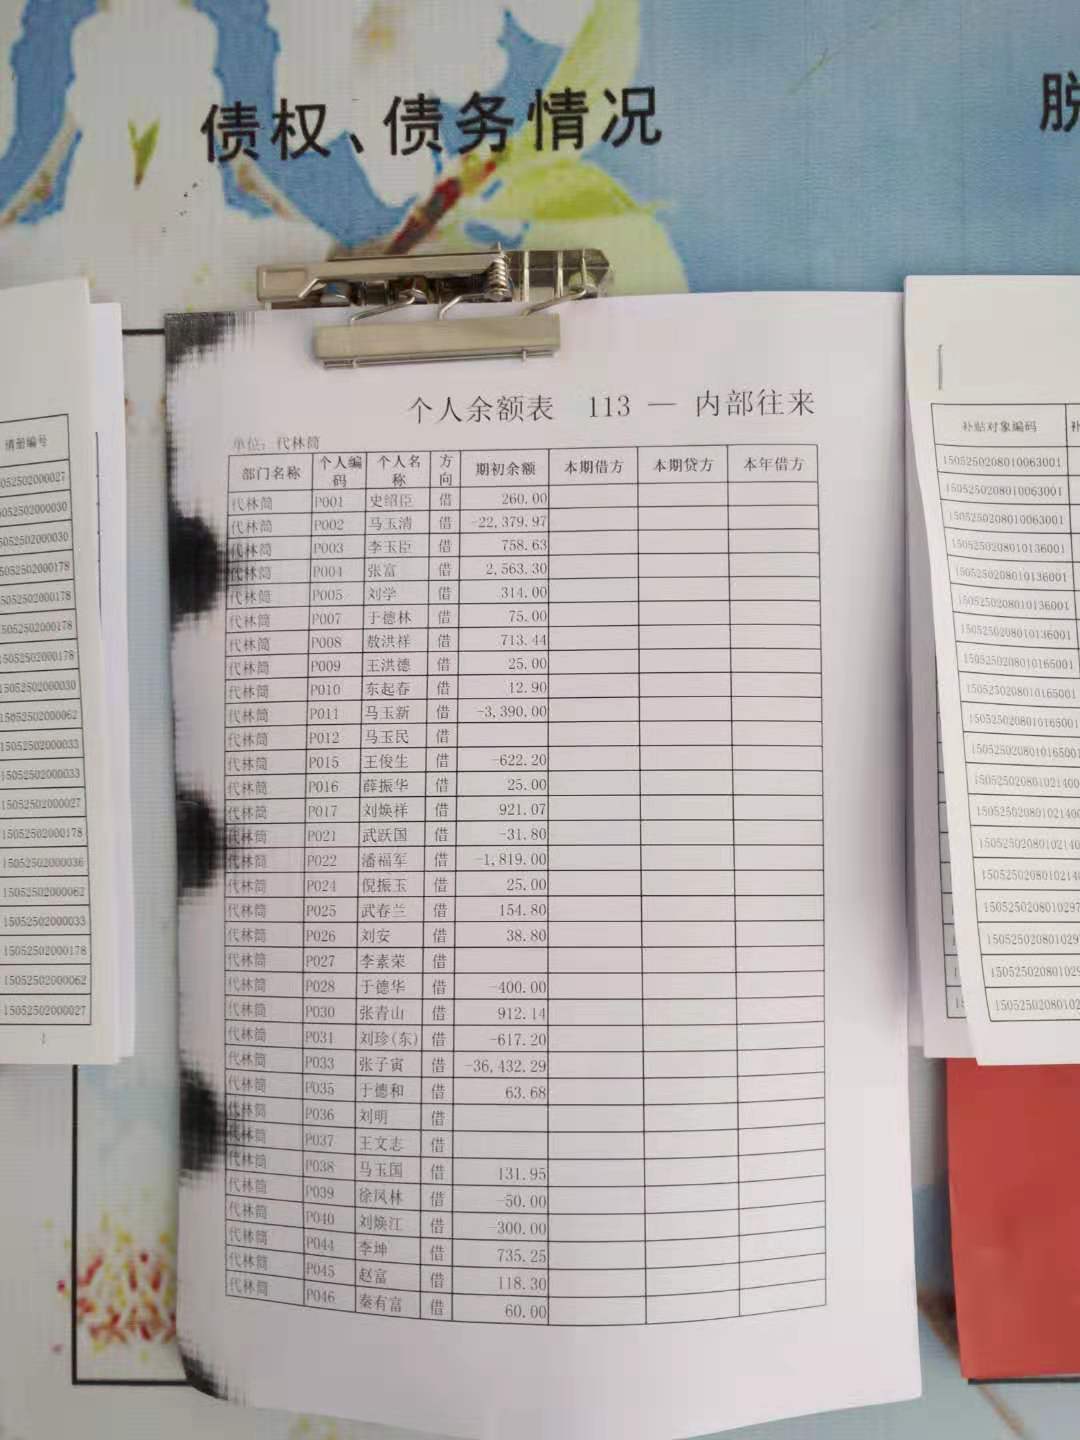 债权、债务情况
脱
个人余额表 113 — 内部往来
单位: 代林筒
部门名称 个人编码 个人名称 方向 期初余额 本期借方 本期贷方 本年借方
代林筒 P001 史绍臣 借 260.00
代林筒 P002 马玉清 借 -22,379.97
代林筒 P003 李玉臣 借 758.63
代林筒 P004 张富 借 2,563.30
代林筒 P005 刘学 借 314.00
代林筒 P007 于德林 借 75.00
代林筒 P008 敖洪祥 借 713.44
代林筒 P009 王洪德 借 25.00
代林筒 P010 东起春 借 12.90
代林筒 P011 马玉新 借 -3,390.00
代林筒 P012 马玉民 借
代林筒 P015 王俊生 借 -622.20
代林筒 P016 薛振华 借 25.00
代林筒 P017 刘焕祥 借 921.07
代林筒 P021 武跃国 借 -31.80
代林筒 P022 潘福军 借 -1,819.00
代林筒 P024 倪振玉 借 25.00
代林筒 P025 武春兰 借 154.80
代林筒 P026 刘安 借 38.80
代林筒 P027 李素荣 借
代林筒 P028 于德华 借 -400.00
代林筒 P030 张青山 借 912.14
代林筒 P031 刘珍(东) 借 -617.20
代林筒 P033 张子寅 借 -36,432.29
代林筒 P035 于德和 借 63.68
代林筒 P036 刘明 借
代林筒 P037 王文志 借
代林筒 P038 马玉国 借 131.95
代林筒 P039 徐凤林 借 -50.00
代林筒 P040 刘焕江 借 -300.00
代林筒 P044 李坤 借 735.25
代林筒 P045 赵富 借 118.30
代林筒 P046 秦有富 借 60.00
清册编号
15052502000062
15052502000033
15052502000033
15052502000027
15052502000178
15052502000036
15052502000062
15052502000033
15052502000178
15052502000062
15052502000027
补贴对象编码
1505250208010063001
1505250208010063001
1505250208010063001
1505250208010136001
1505250208010136001
1505250208010136001
1505250208010136001
1505250208010165001
1505250208010165001
1505250208010165001
1505250208010165001